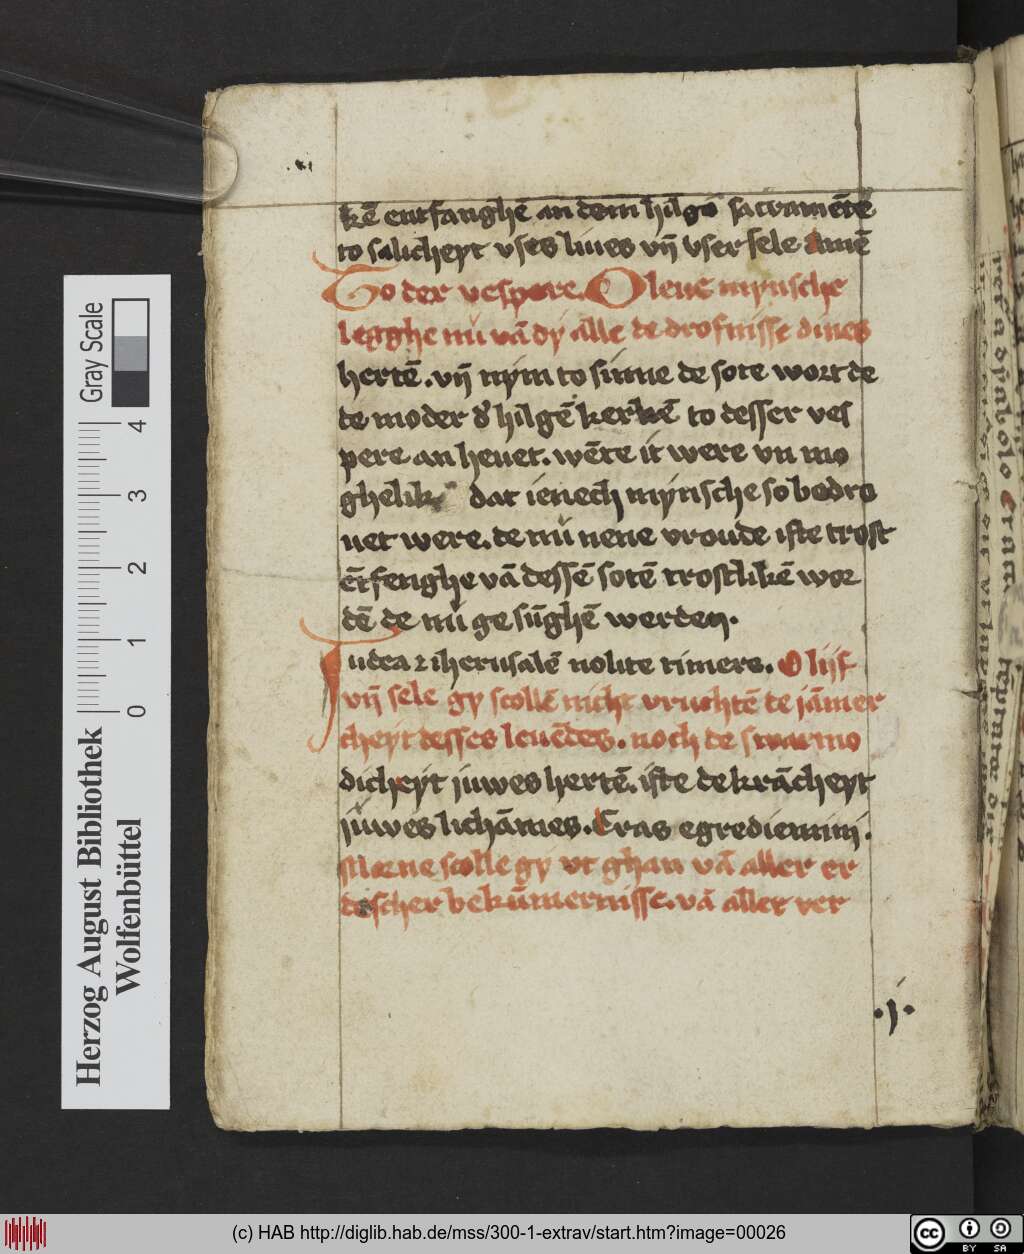 kē entfanghē an dem hilgē sacramēte
to salicheyt vses liues vn̄ vser sele Amē
To der vespere. O leue mynsche
legghe nu vā dy alle de drofnisse dines
hertē. vn̄ nym to sinne de sote wort de
de moder d' hilgē kerkē to desser ves
pere an heuet. wēte it were vn mo
ghelik dat ienech mynsche so bedro
uet were. de nu nene vroude ifte trost
ētfenghe vā dessē sotē trostlikē wor
dē de nu ge sūghē werden.
Iudea ⁊ iherusalē nolite timere. O lijf
vn̄ sele gy scollē nicht vruchtē de jāmer
cheyt desses leuēdes. noch de swarmo
dicheyt juwes hertē. ifte de krācheyt
juwes lichāmes. Cras egrediemini.
Morne scolle gy vt ghan vā aller er
descher bekūmernisse. vā aller ver
.j.
Gray Scale
0 1 2 3 4
Herzog August Bibliothek
Wolfenbüttel
(c) HAB http://diglib.hab.de/mss/300-1-extrav/start.htm?image=00026
cc BY SA